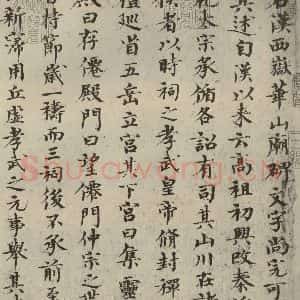 漢西嶽華山廟碑文字尚完可
其述自漢以來云高祖初興改秦
祀太宗承循各詔有司其山川在諸
侯者以時祠之孝武皇帝脩封禪
禮巡省五岳立宮其下宮曰集靈
殿曰存僊殿門曰望僊門仲宗之世
者持節歲一禱而三祠後不承前至
新寖用丘虛孝武之元事舉其